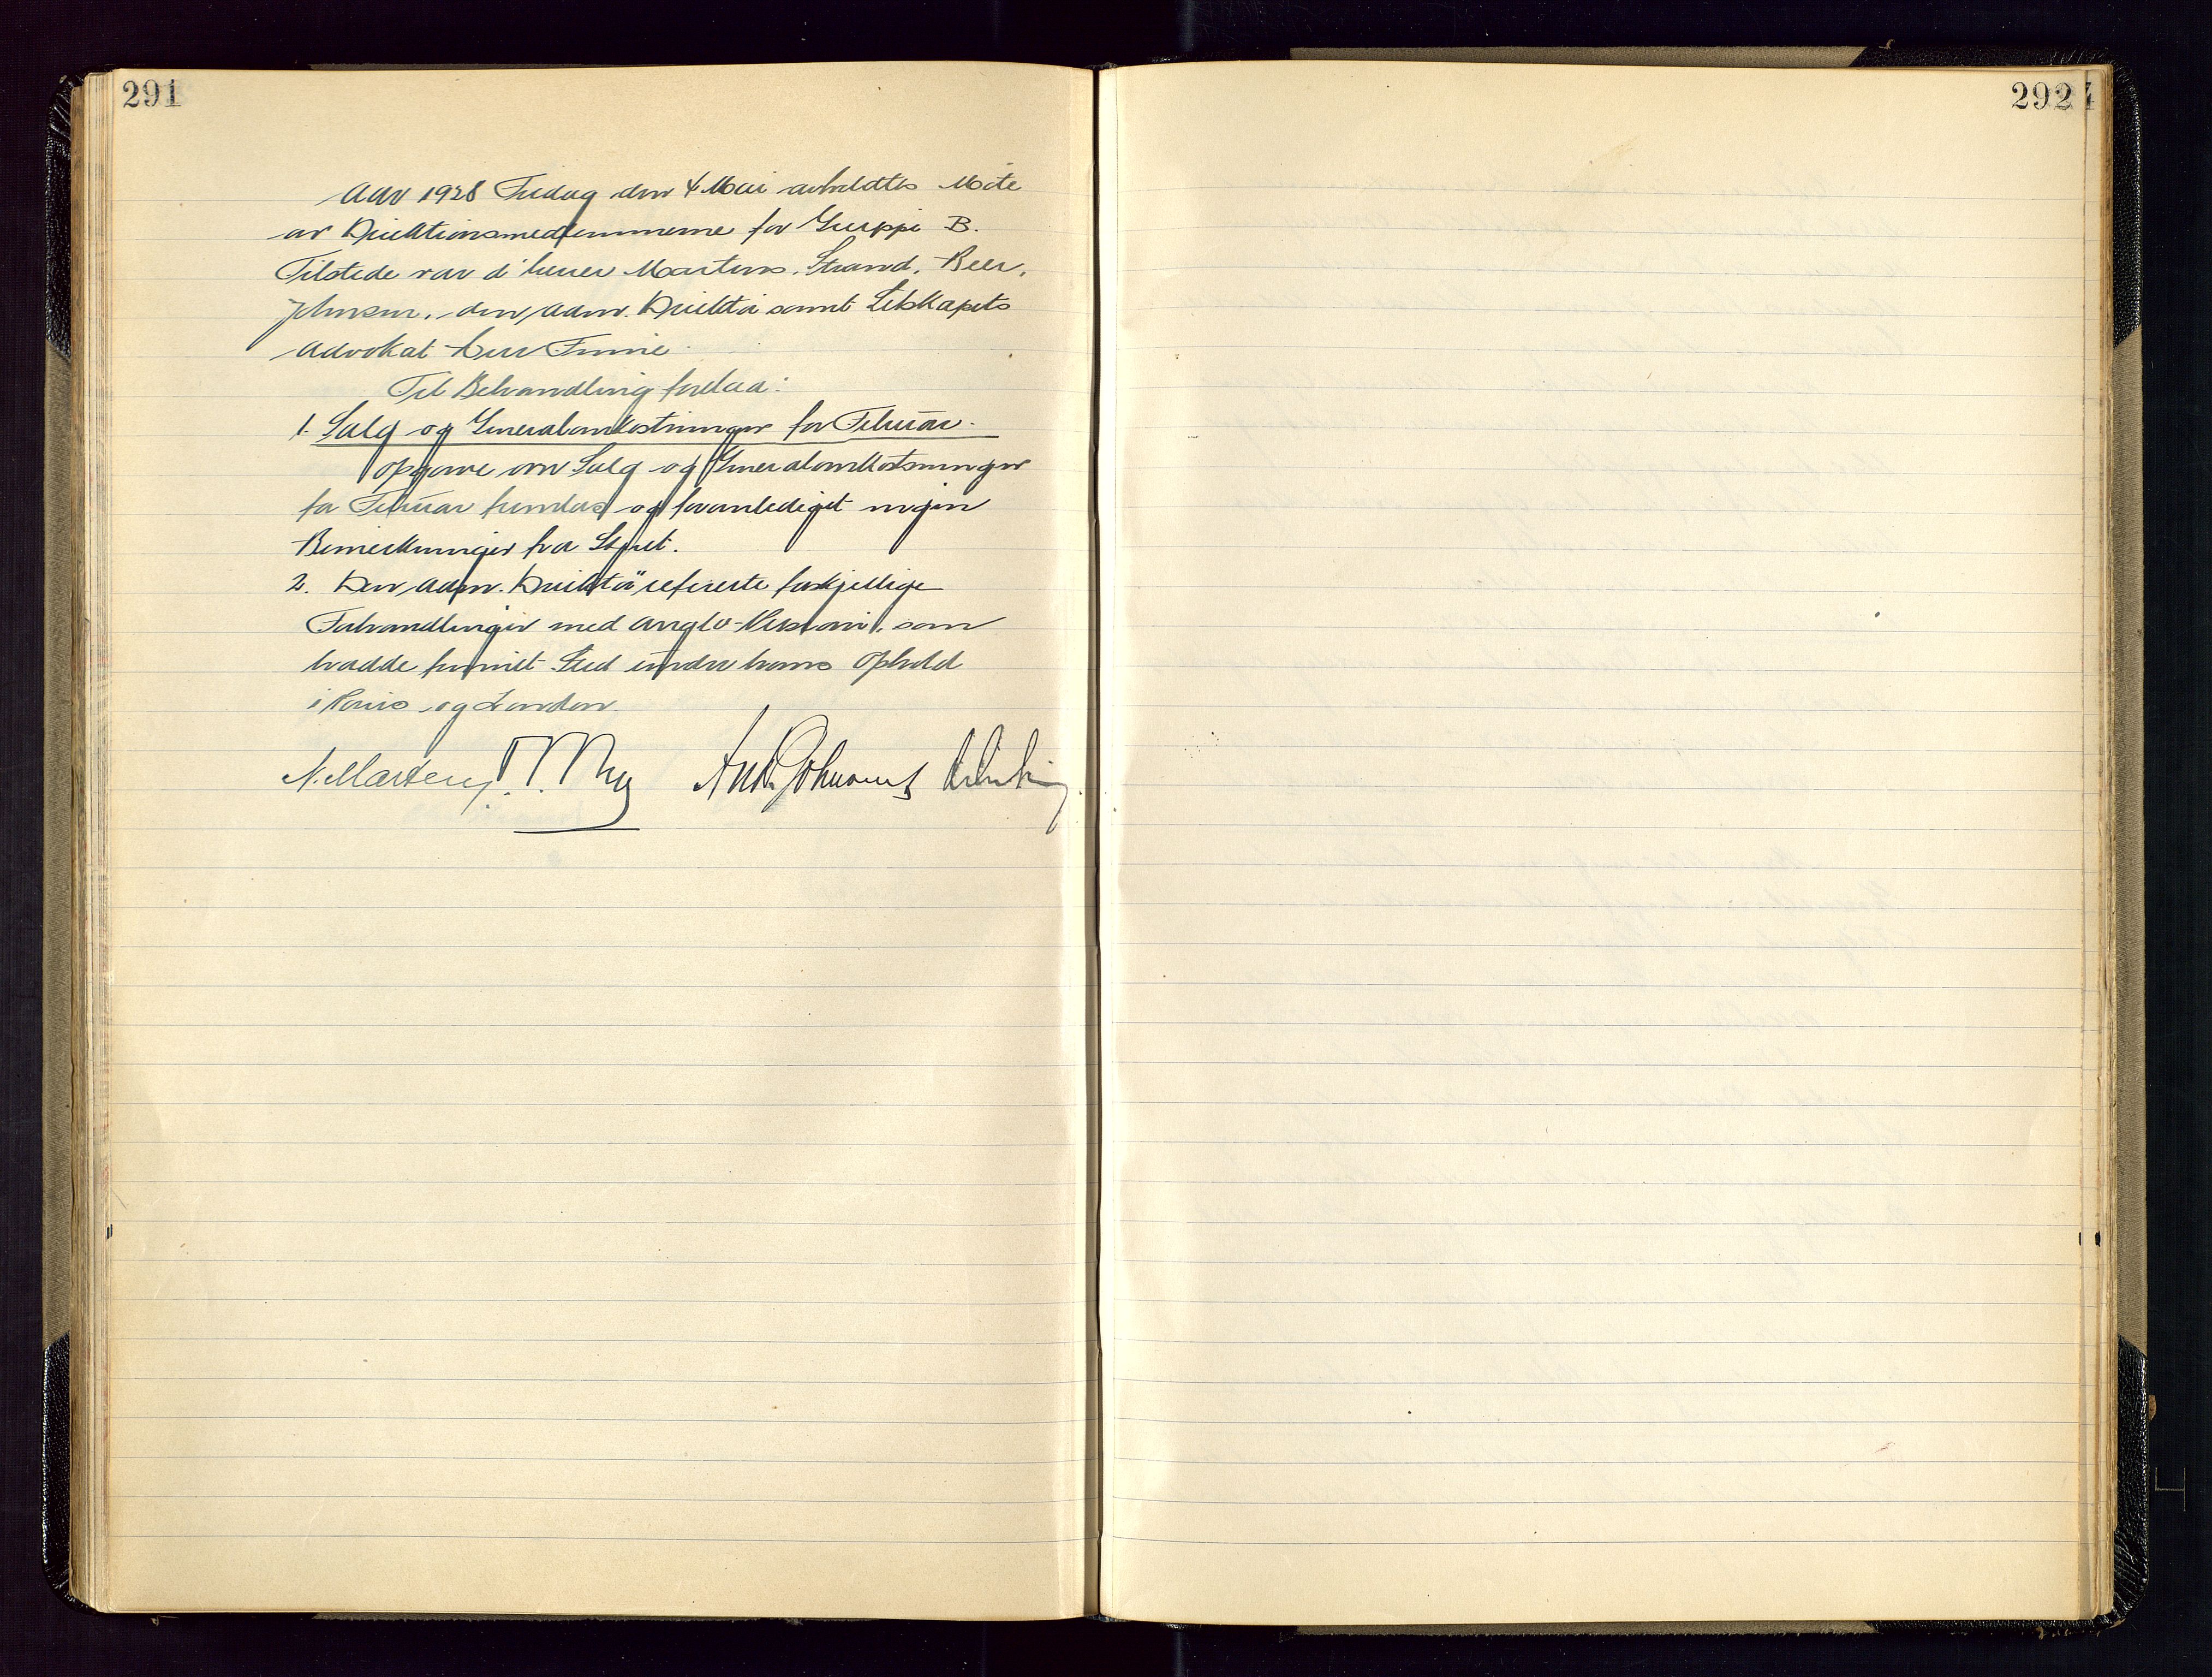 291
292
Aar 1928 Fredag den 4 Mai avholdtes Møte
av Direktionsmedlemmerne for Gruppe B.
Tilstede var d'herrer Martens, Strand, Beer,
Johnsen, den adm. Direktør samt Selskapets
Advokat herr Finne.
Til Behandling forelaa:
1. Salg og Generalomkostninger for Februar.
Opgave over Salg og Generalomkostninger
for Februar fremlas og foranlediget ingen
Bemerkninger fra Styret.
2. Den adm. Direktør refererte forskjellige
Forhandlinger med Anglo-Persian, som
hadde funnet Sted under hans Ophold
i Paris og London.
N. Martens